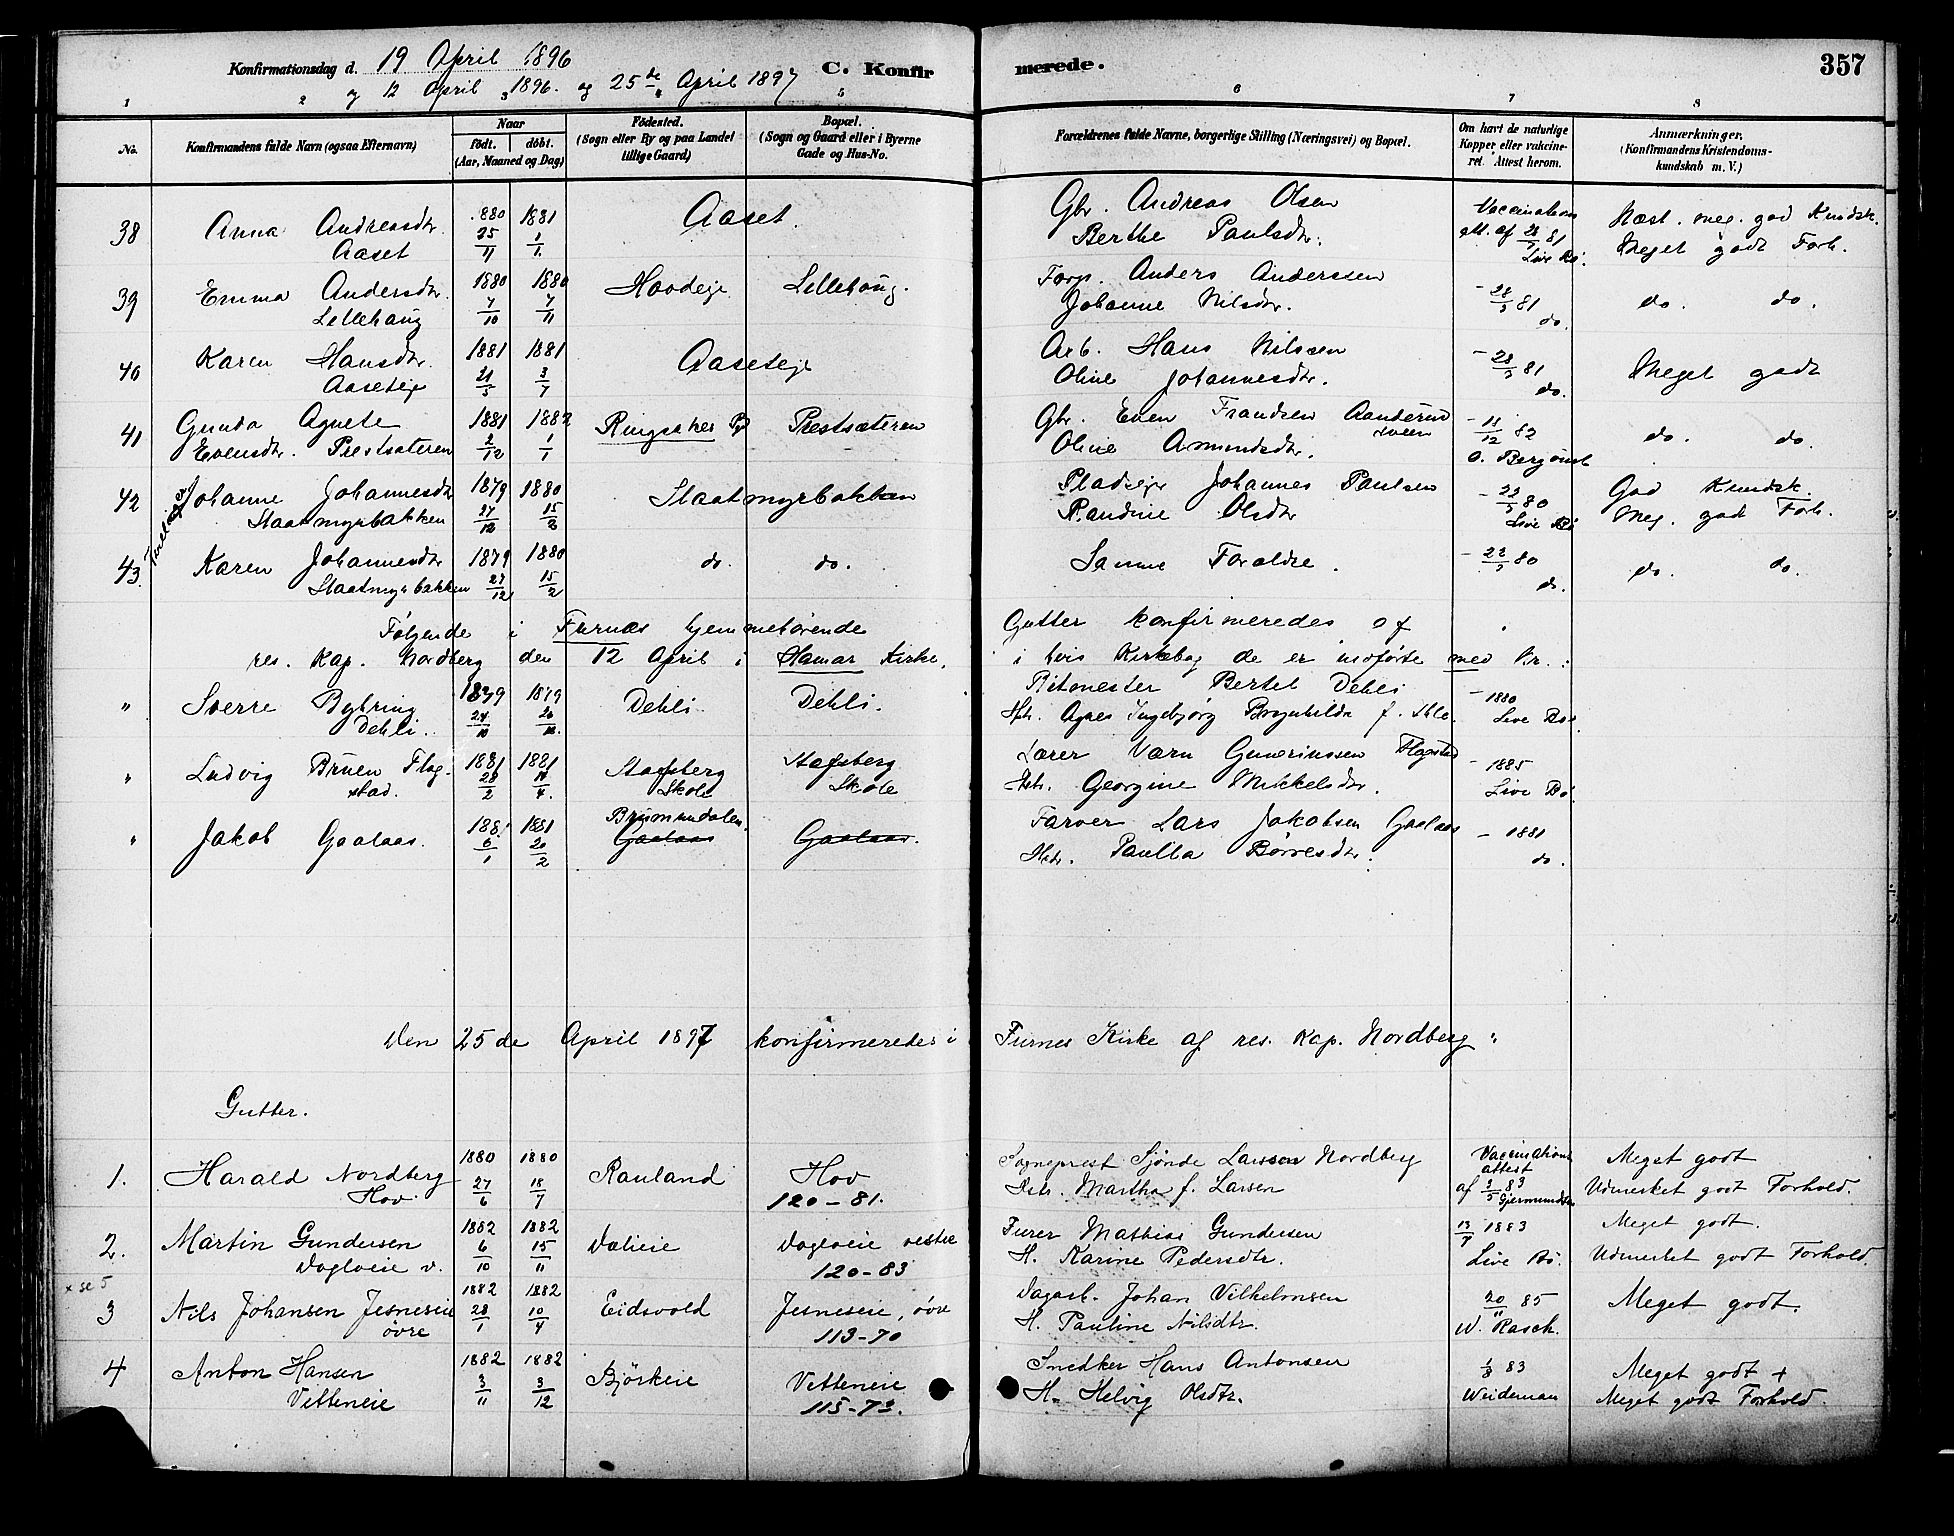 Konfirmationsdag d. 19 April 1896 C. Konfirmerede. 357
og 12 April 1896. og 25de April 1897
1 2 3 4 5 6 7 8
No. Konfirmandens fulde Navn (ogsaa Efternavn) Naar født. døbt. (Aar, Maaned og Dag) Fødested. (Sogn eller By og paa Landet tillige Gaard) Bopæl. (Sogn og Gaard eller i Byerne Gade og Hus-No. Forældrenes fulde Navne, borgerlige Stilling (Næringsvei) og Bopæl. Om havt de naturlige Kopper eller vakcineret. Attest herom. Anmærkninger. (Konfirmandens Kristendomskundskab m. V.)
38 Anna Andreasdtr. 1880 1881 Aaset. Gbr. Andreas Olsen Vaccinations Næst. meg. god Kundsk.
Aaset 25/11 1/1. Berthe Paulsdtr. att. af 81 Live Bø. Meget godt Forh.
39 Emma Andersdtr. 1880 1880 Hovdeje Lillehaug. Forp. Anders Anderssen - 28/3 81 do. do.
Lillehaug 7/10 7/11 Johanne Nilsdtr. do.
40 Karen Hansdtr. 1881 1881 Aaseteje Arb. Hans Nilssen - 81 Meget godt
Aaseteje 21/5 3/7 Oline Johannesdtr. do.
41 Gunda Agnete 1881 1882 Ringsaker Prestsæteren Gbr. Even Frandsen - 82 do. do.
Evensdtr. Prestsæteren 2/12 1/1 Oline Amundsdtr. O. Bergønst
42 Johanne Johannesdtr 1879 1880 Staatmyrbakken Pladseje Johannes Paulsen - 80 God Kundsk.
Staatmyrbakken 27/12 15/2 Randine Olsdtr Live Bø Meg. godt Forh.
43. Karen Johannesdtr 1879 1880 do. do. Samme Forældre. - 80 do. do.
Staatmyrbakken 27/12 15/2 do.
Følgende i Furnæs hjemmehørende Gutter konfirmeredes af
res. Kap. Nordberg den 12 April i Hamar Kirke, i hvis Kirkebog de er indførte med Nr. :
" Sverre Bybring 1879 1879 Dehli. Dehli. Ritmester Bertel Dehli - 1880
Dehli. Hstr. Agnes Ingebjørg Brynhilda f. Live Bø.
" Ludvig Bruen Flag- 1881 1881 Stafsberg Stafsberg Lærer Varn Gunerinssen Flagstad - 1885
stad. Skole Skole Hstr. Georgine Mikkelsdtr. Live Bø.
" Jakob Gaalaas. 1881 1881 Brumunddalen. Gaalaas Gaalaas. Farver Lars Jakobsen Gaalaas - 1881
6/1 20/2 Hstr. Paulla Børresdtr. do.
Den 25de April 1897 konfirmeredes i Furnes Kirke af res. Kap. Nordberg :
Gutter.
1. Harald Nordberg 1880 1880 Rauland Hov Sogneprest Sjønde Larssen Nordberg Vaccinations attest Meget godt
Hov. 27/6 18/7 120-81. Hstr. Martha f. Larsen af 83 Gjermundsen Udmerket godt Forhold.
2. Martin Gundersen 1882 1882 Dælieie Dogloeie vestre Furer Mathias Gundersen 1883 Meget godt.
Dogloeie v. 6/10 15/11 120-83 H. Karine Pedersdtr. Live Bø. Udmerket godt Forhold.
x se 5
3 Nils Johansen Jesneseie 1882 1882 Eidsvold Jesneseie, øvre Dagarb. Johan Vilhelmsen 20/11 85 Meget godt.
øvre 28/1 10/4 113-70 H. Pauline Nilsdtr. W. Rasch.
4 Anton Hansen 1882 1882 Bjørkeie Vetteneie Snedker Hans Antonsen 83 Meget godt +
Vetteneie 3/11 3/12 115-73. H. Helvig Olsdtr. Weideman Meget godt Forhold.